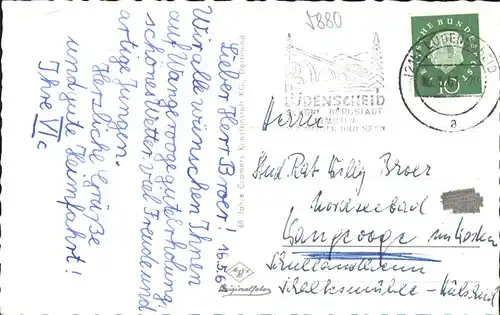 Lieber Herr Broer! 16.5.61
Wir alle wünschen Ihnen
auf Wangerooge gute Erholung,
schönes Wetter, viel Freude und
artige Jungen.
Herzliche Grüße
und gute Heimfahrt!
Ihre VIc
60 Jahre Cramers Kunstanstalt KG., Dortmund
Originalfoto
5880
LÜDENSCHEID
BERGSTADT
LÜDENSCHEID
a
DEUTSCHE BUNDESPOST
10
Herrn
Stud. Rat Willy Broer
Nordseebad
Wangerooge
Schullandheim